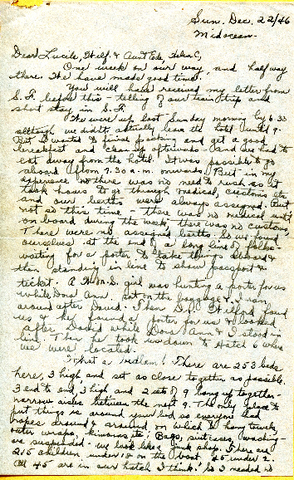 Sun. Dec. 22/46
Midocean.
Dear Lucile, Hilf. & Aunt Eda, Helen G,
One week on our way, and half way
there. We have made good time!
You will have received my letter from
S.F. before this – telling of our train trip and
short stay in S.F.
We were up last Sunday morning by 6:30
although we didn't actually leave the hotel until 9.
But I wanted to finish and get a good
breakfast & clean up afterwards. And we had to
eat away from the hotel. It was possible to go
aboard from 9:30 a.m. onwards. But in my
experience there was no need to rush as it
took hours to go through medical, customs etc
and our berths were always assigned. But
not so this time – there was no medical exit,
on board during the week, there was no customs,
There were no assigned berths. So we found
ourselves at the end of a long line of folks
waiting for a porter to take things aboard &
then standing in line to show passport &
ticket. A girl was hunting a porter for us
while Dora Ann sat on the baggage & I ran
around after David. Then Dr. Hilford found
us & he found a porter for us & looked
after David while Dora Ann & I stood in
line. Then he took us down to Hatch 6 where
we were located.
What a bedlam! There are 253 beds
here, 3 high and set as close together as possible.
3 end to end 3 high and 2 sets of 9 hung up together –
narrow aisles between the next 9. The only place to
put things is around your bed so everyone has
ropes around & around on which to hang towels,
outer wraps, kimonos, etc! Bags, suitcases, washing –
are suspended. We look like a junk shop. There are
215 children under 12 on the boat & 25 under 2.
All 45 are in our hatch I think! So I needed n